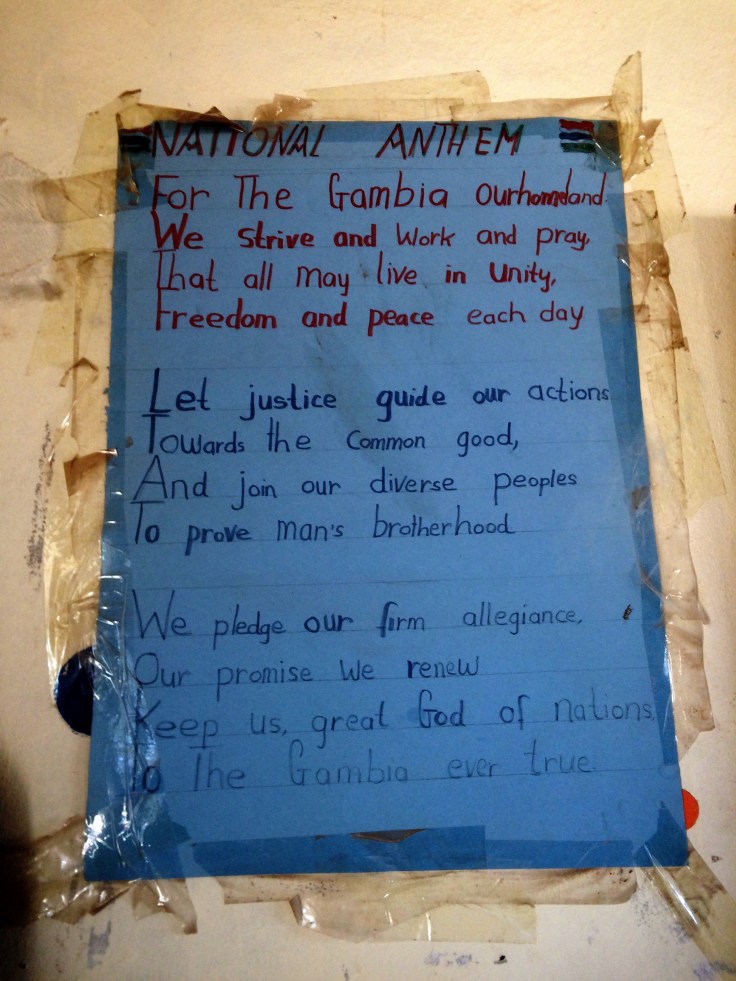 NATIONAL ANTHEM
For The Gambia Ourhomeland
We strive and Work and pray,
That all may live in Unity,
Freedom and peace each day
Let justice guide our actions
Towards the Common good,
And join our diverse peoples
To prove man's brotherhood
We pledge our firm allegiance,
Our promise We renew
Keep Us, great God of nations,
To The Gambia ever true.